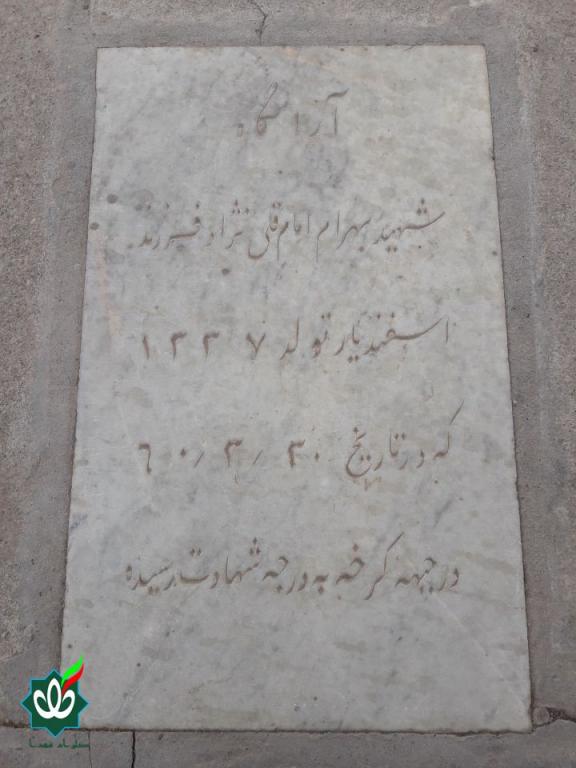 آرامگاه
شهید بهرام امام قلی نژاد فرزند
اسفندیار تولد ۱۳۳۷
که در تاریخ ۶۰/۳/۳۰
در جبهه کرخه به درجه شهادت رسیده